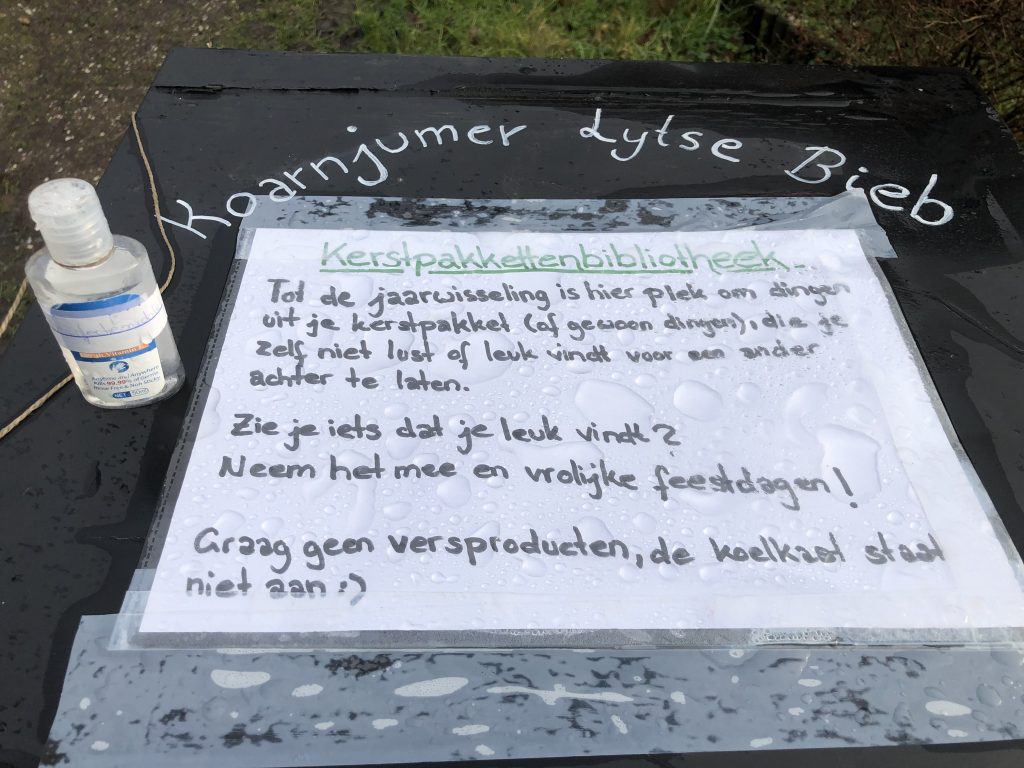 Koarnjumer Lytse Bieb
Kerstpakkettenbibliotheek
Tot de jaarwisseling is hier plek om dingen
uit je kerstpakket (of gewoon dingen), die je
zelf niet lust of leuk vindt voor een ander
achter te laten.
Zie je iets dat je leuk vindt?
Neem het mee en vrolijke feestdagen!
Graag geen versproducten, de koelkast staat
niet aan :)
Anytime and Anywhere
Kills 99.99% of Germs
Rinse-Free & Non-Sticky
NET